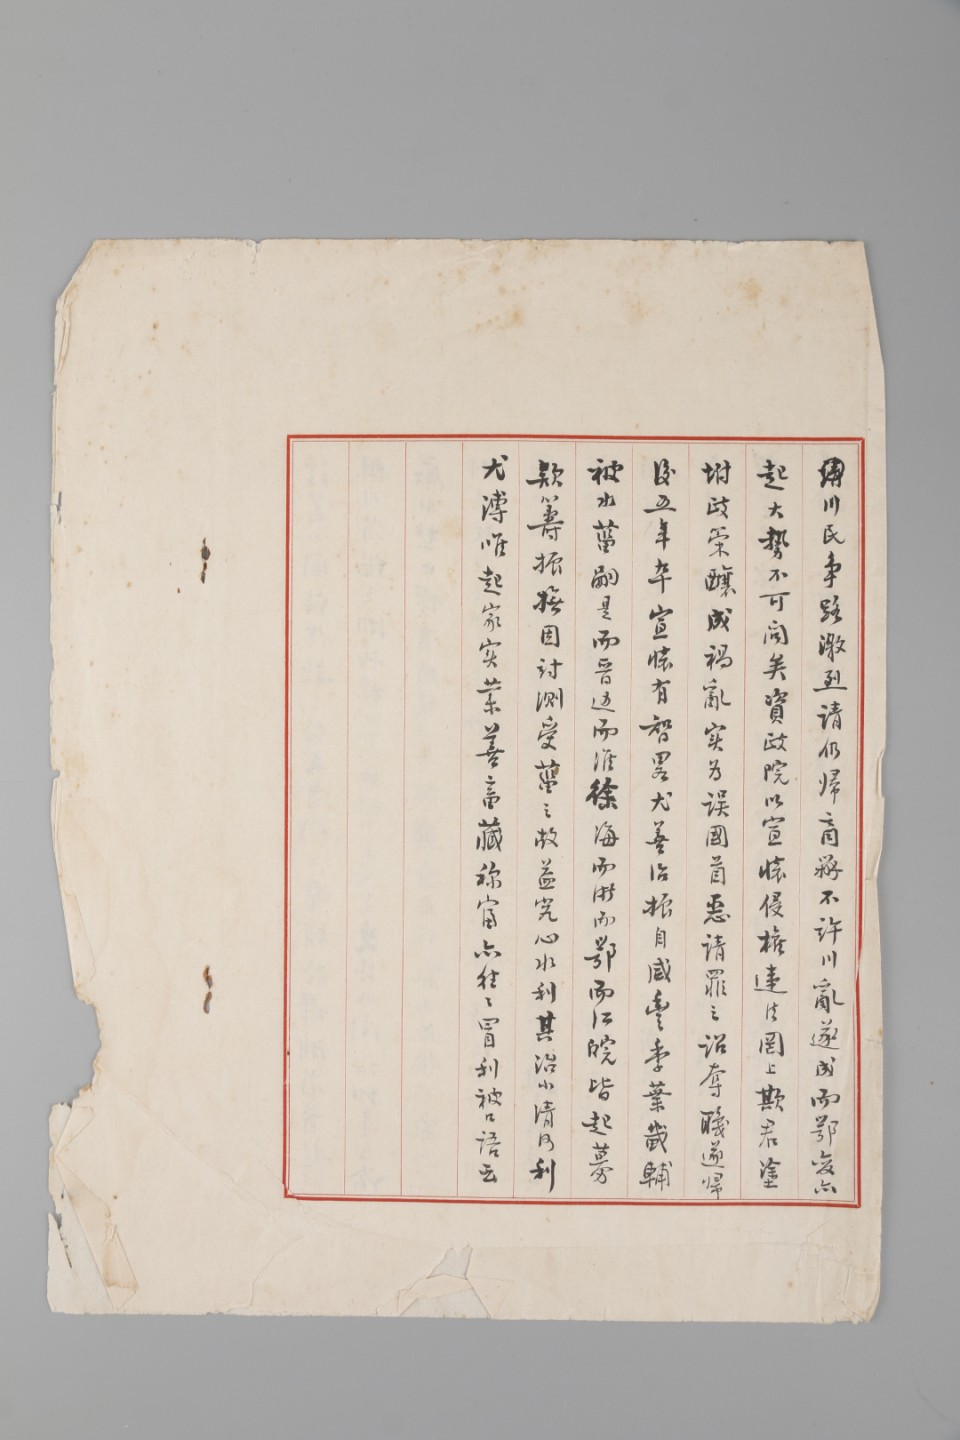 川民爭路激烈請仍歸商辦不許川亂遂成而鄂变亦
起大勢不可问矣資政院以宣懷侵權違法罔上欺君塗
坿政策釀成禍亂实为误國首惡請罪之詔奪職遂歸
後五年卒宣懷有智畧尤善治振自咸豐季葉畿輔
被水菑嗣是而晉边而淮徐海而浙而鄂而江皖皆起募
款籌振撫因討测受菑之故益究心水利其治小清河利
尤溥唯起家实业善畜藏称富亦往〻冒利被口語云